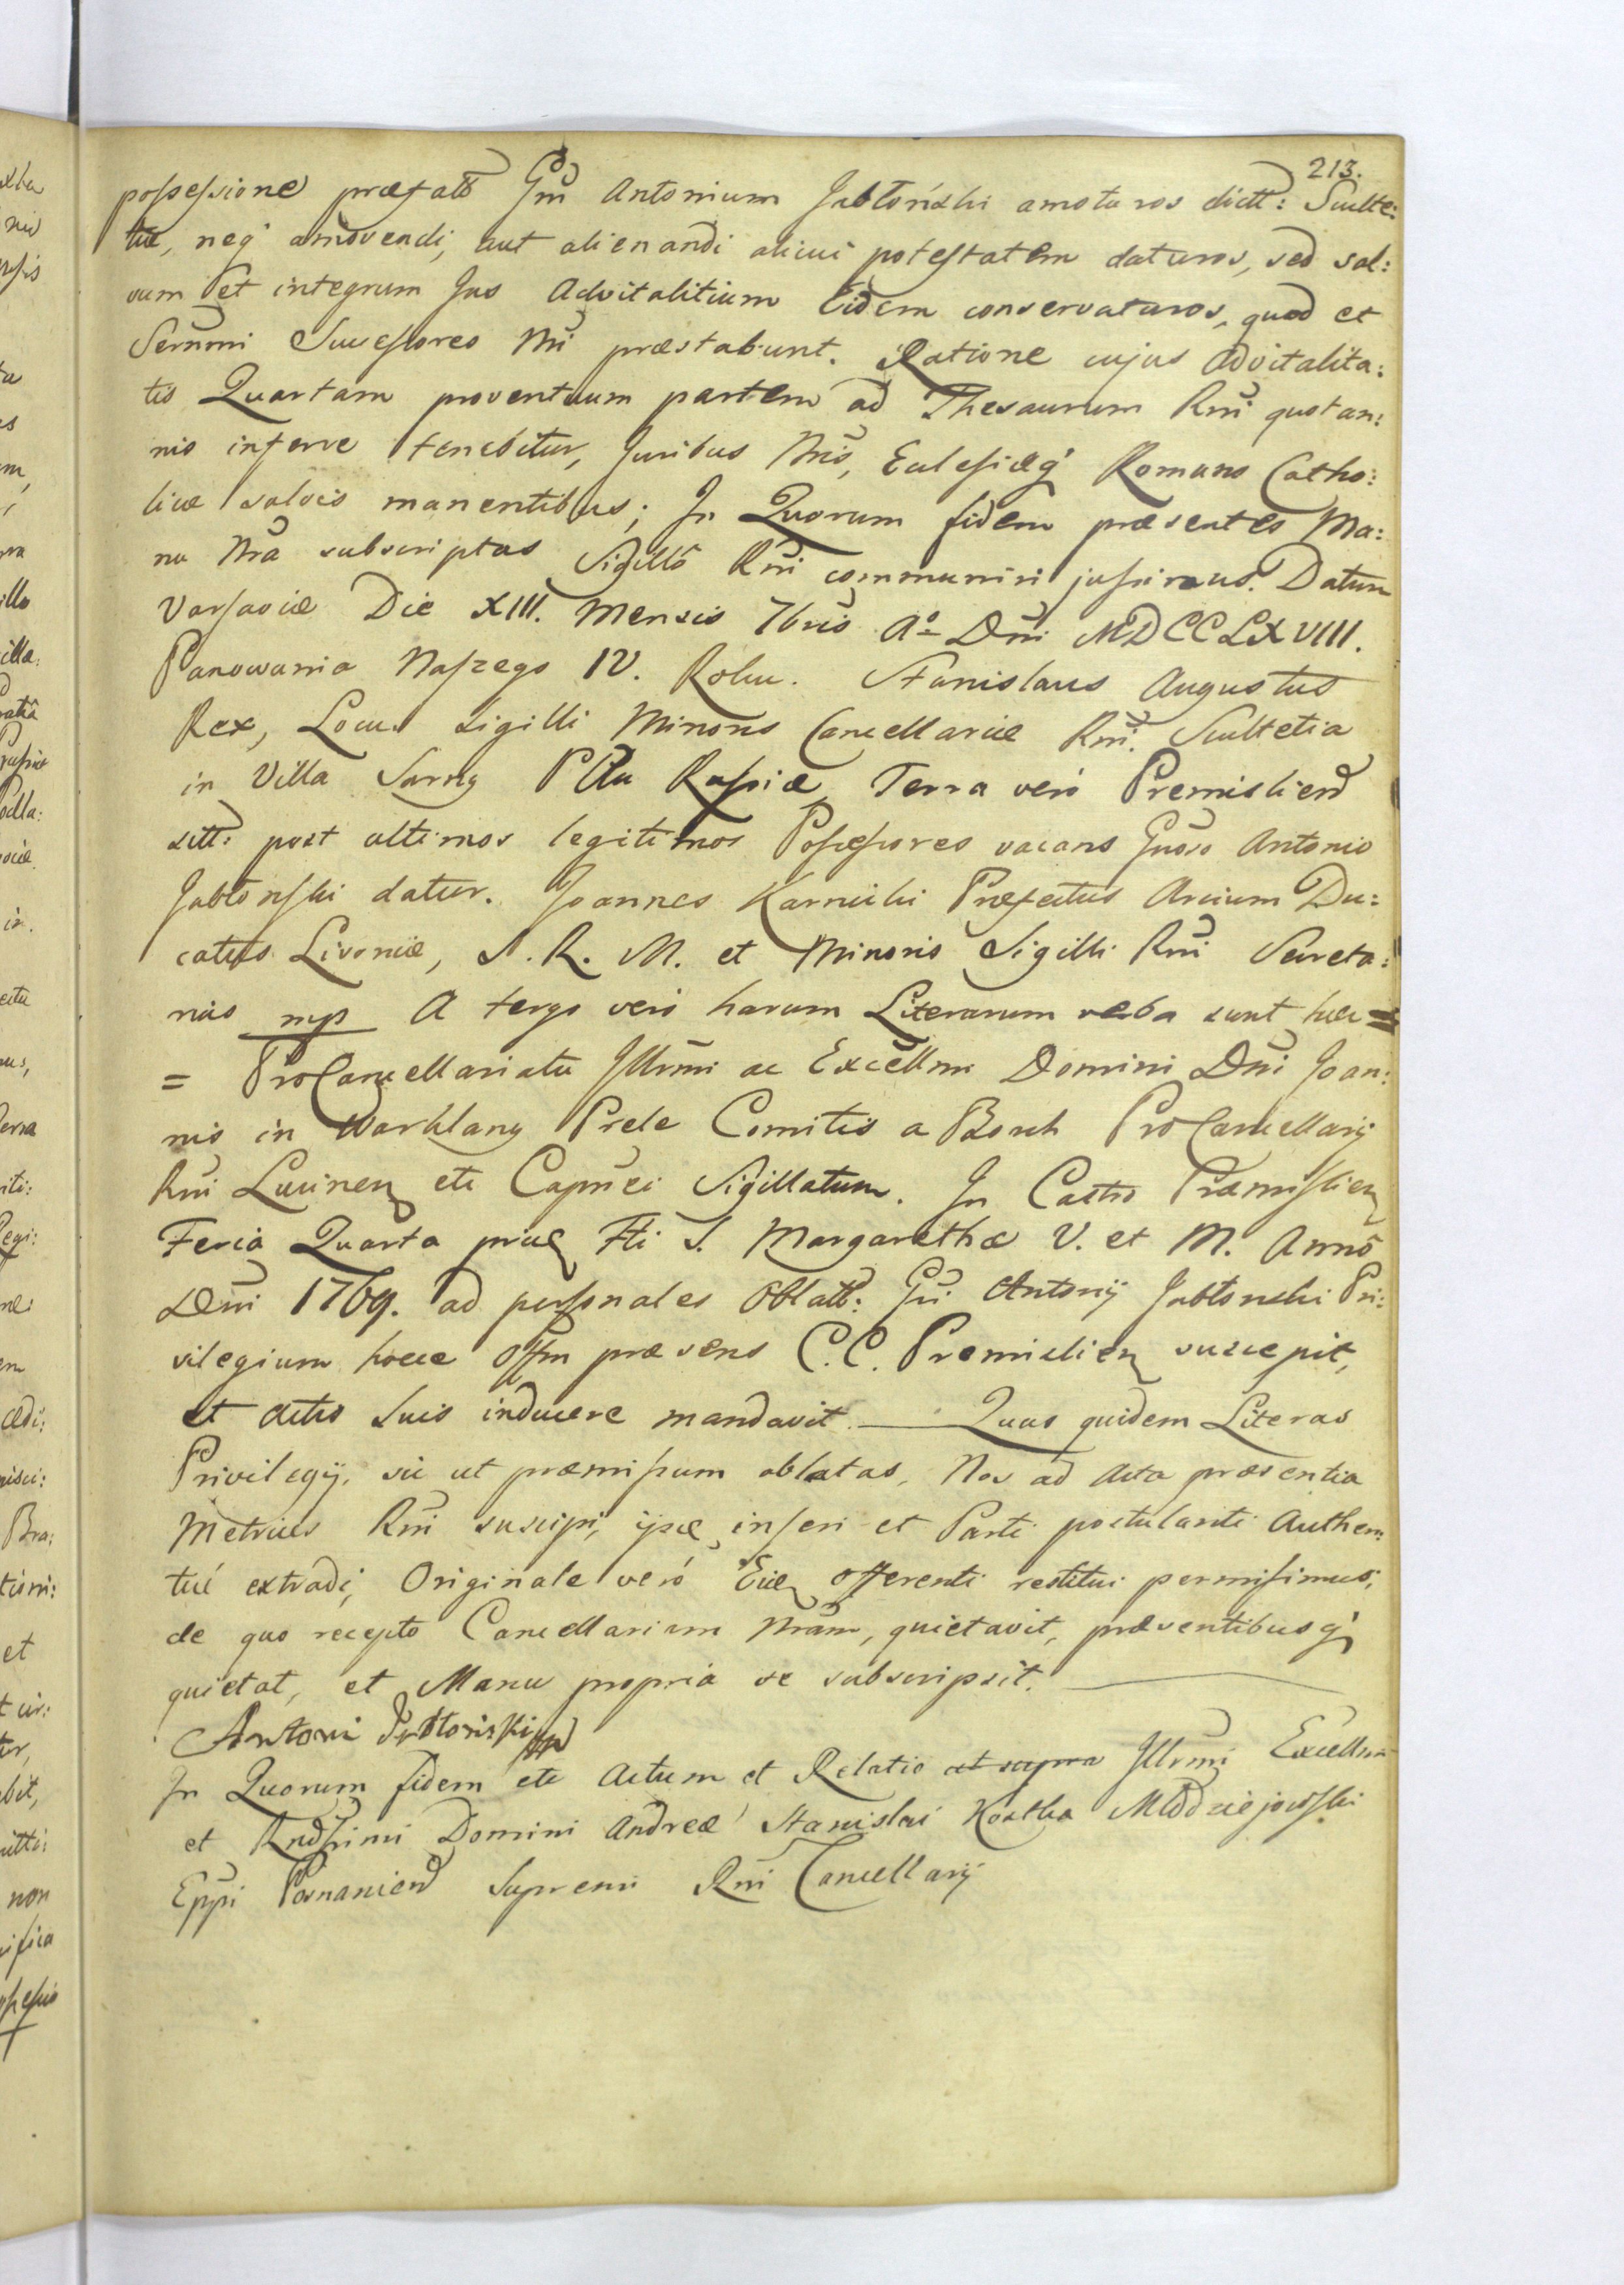 213.
possessione præfatũ Gm̃ Antonium Jabłoński amoturos dictt: Sculte:
tiæ, neq́ amovendi, aut alienandi alicui potestatem daturos, sed sal:
vum et integrum Jus Advitalitium Eidem conservaturos, quod et
Serũmi Successores Nr̃i præstabunt. Ratione cujus advitalita:
tis Quartam proventuum partem ad Thesaurum Rñi quotan:
nis inferre tenebitur, Juribus Nr̃is, Eclesiæq́ Romano Catho:
licæ salvis manentibus; In Quorum fidem præsentes Ma:
nu Nr̃a subscriptas Sigillô Rñi communiri jussimus. Datum
Varsaviæ Die XIII. Mensis 7bris Aº Dñi MDCCLXVIII.
Panowania Naszego IV. Roku. Stanislaus Augustus
Rex, Locus Sigilli Minoris Cancellariæ Rñi. Scultetia
in Villa Sarny Pltu Russiæ Terra veró Premislien̄
sitt: post ultimos legitimos Possessores vacans Gnõso Antonio
Jabłonski datur. Joannes Karnicki Præfectus Arcium Du:
catus Livoniæ, S. R. M. et Minoris Sigilli Rñi Secreta:
rius mp A tergo veró harum Literarum verba sunt hæc =
= ProCancellariatu Illr̃mi ac Excell̃mi Domini Dñi Joan:
nis in Warklany Prele Comitis a Borch ProCancellarij
Rñi Lucinen̄ etc Capñei Sigillatum. In Castro Præmislien̄
Feria Quarta prix Fti S. Margarethæ V. et M. Annô
Dñi 1769. ad personales Oblatt: Gñi Antonij Jabłonski Pri:
vilegium hocce Offm præsens C.C. Premislien̄ suscepit,
et actis suis inducere mandavit. — Quas quidem Literas
Privilegij, sic ut præmissum oblatas, Nos ad Acta præsentia
Metrices Rñi suscipi, ijsq inseri et Parti postulanti Authen:
tice extradi, Originale veró Eidē offerenti restitui permisimus;
de quo recepto Cancellariam Nr̃am, quietavit, præsentibusq́
quietat, et Manu propria se subscripsit.
Antoni Jabłoński mp
In Quorum fidem etc Actum et Relatio ut supra Illr̃mi Excell̃mi
et Rndssimi Domini Andreæ Stanislai Kostka Młodziejowski
Epp̃i Posnanien̄ Supremi Rñi Cancellarij